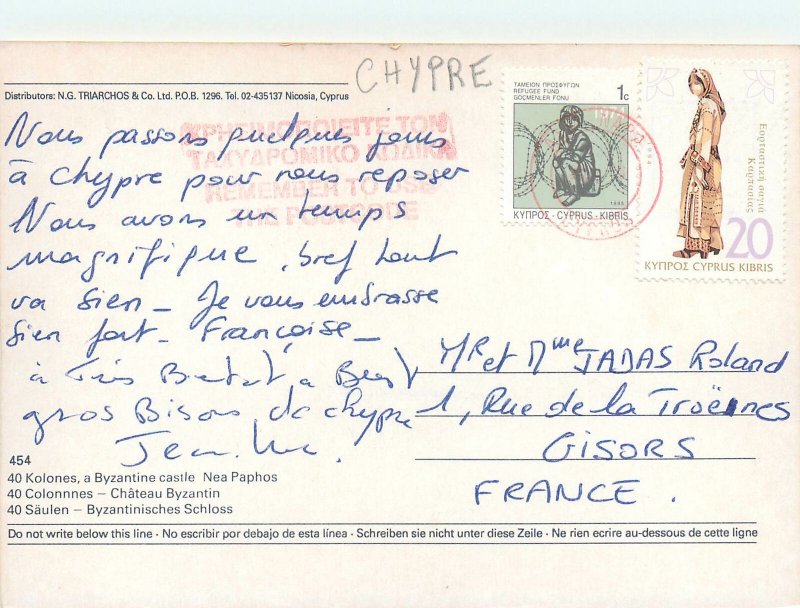 CHYPRE
Distributors: N.G. TRIARCHOS & Co. Ltd. P.O.B. 1296. Tel. 02-435137 Nicosia, Cyprus
ΤΑΜΕΙΟΝ ΠΡΟΣΦΥΓΩΝ
REFUGEE FUND
GÖÇMENLER FONU
1c
1995
ΚΥΠΡΟΣ · CYPRUS · KIBRIS
Εορταστική σαγιά
Καρπασίας
20
ΚΥΠΡΟΣ CYPRUS KIBRIS
ΧΡΗΣΙΜΟΠΟΙΕΙΤΕ ΤΟΝ
ΤΑΧΥΔΡΟΜΙΚΟ ΚΩΔΙΚΑ
REMEMBER TO USE
THE POSTCODE
Nous passons quelques jours
à chypre pour nous reposer
Nous avons un temps
magnifique, bref tout
va bien – Je vous embrasse
bien fort – Françoise –
à
gros Bisous de chypre
Jean-Luc.
Mr et Mme JADAS Roland
1, Rue de la Troënes
GISORS
FRANCE.
454
40 Kolones, a Byzantine castle Nea Paphos
40 Colonnnes – Château Byzantin
40 Säulen – Byzantinisches Schloss
Do not write below this line · No escribir por debajo de esta línea · Schreiben sie nicht unter diese Zeile · Ne rien ecrire au-dessous de cette ligne